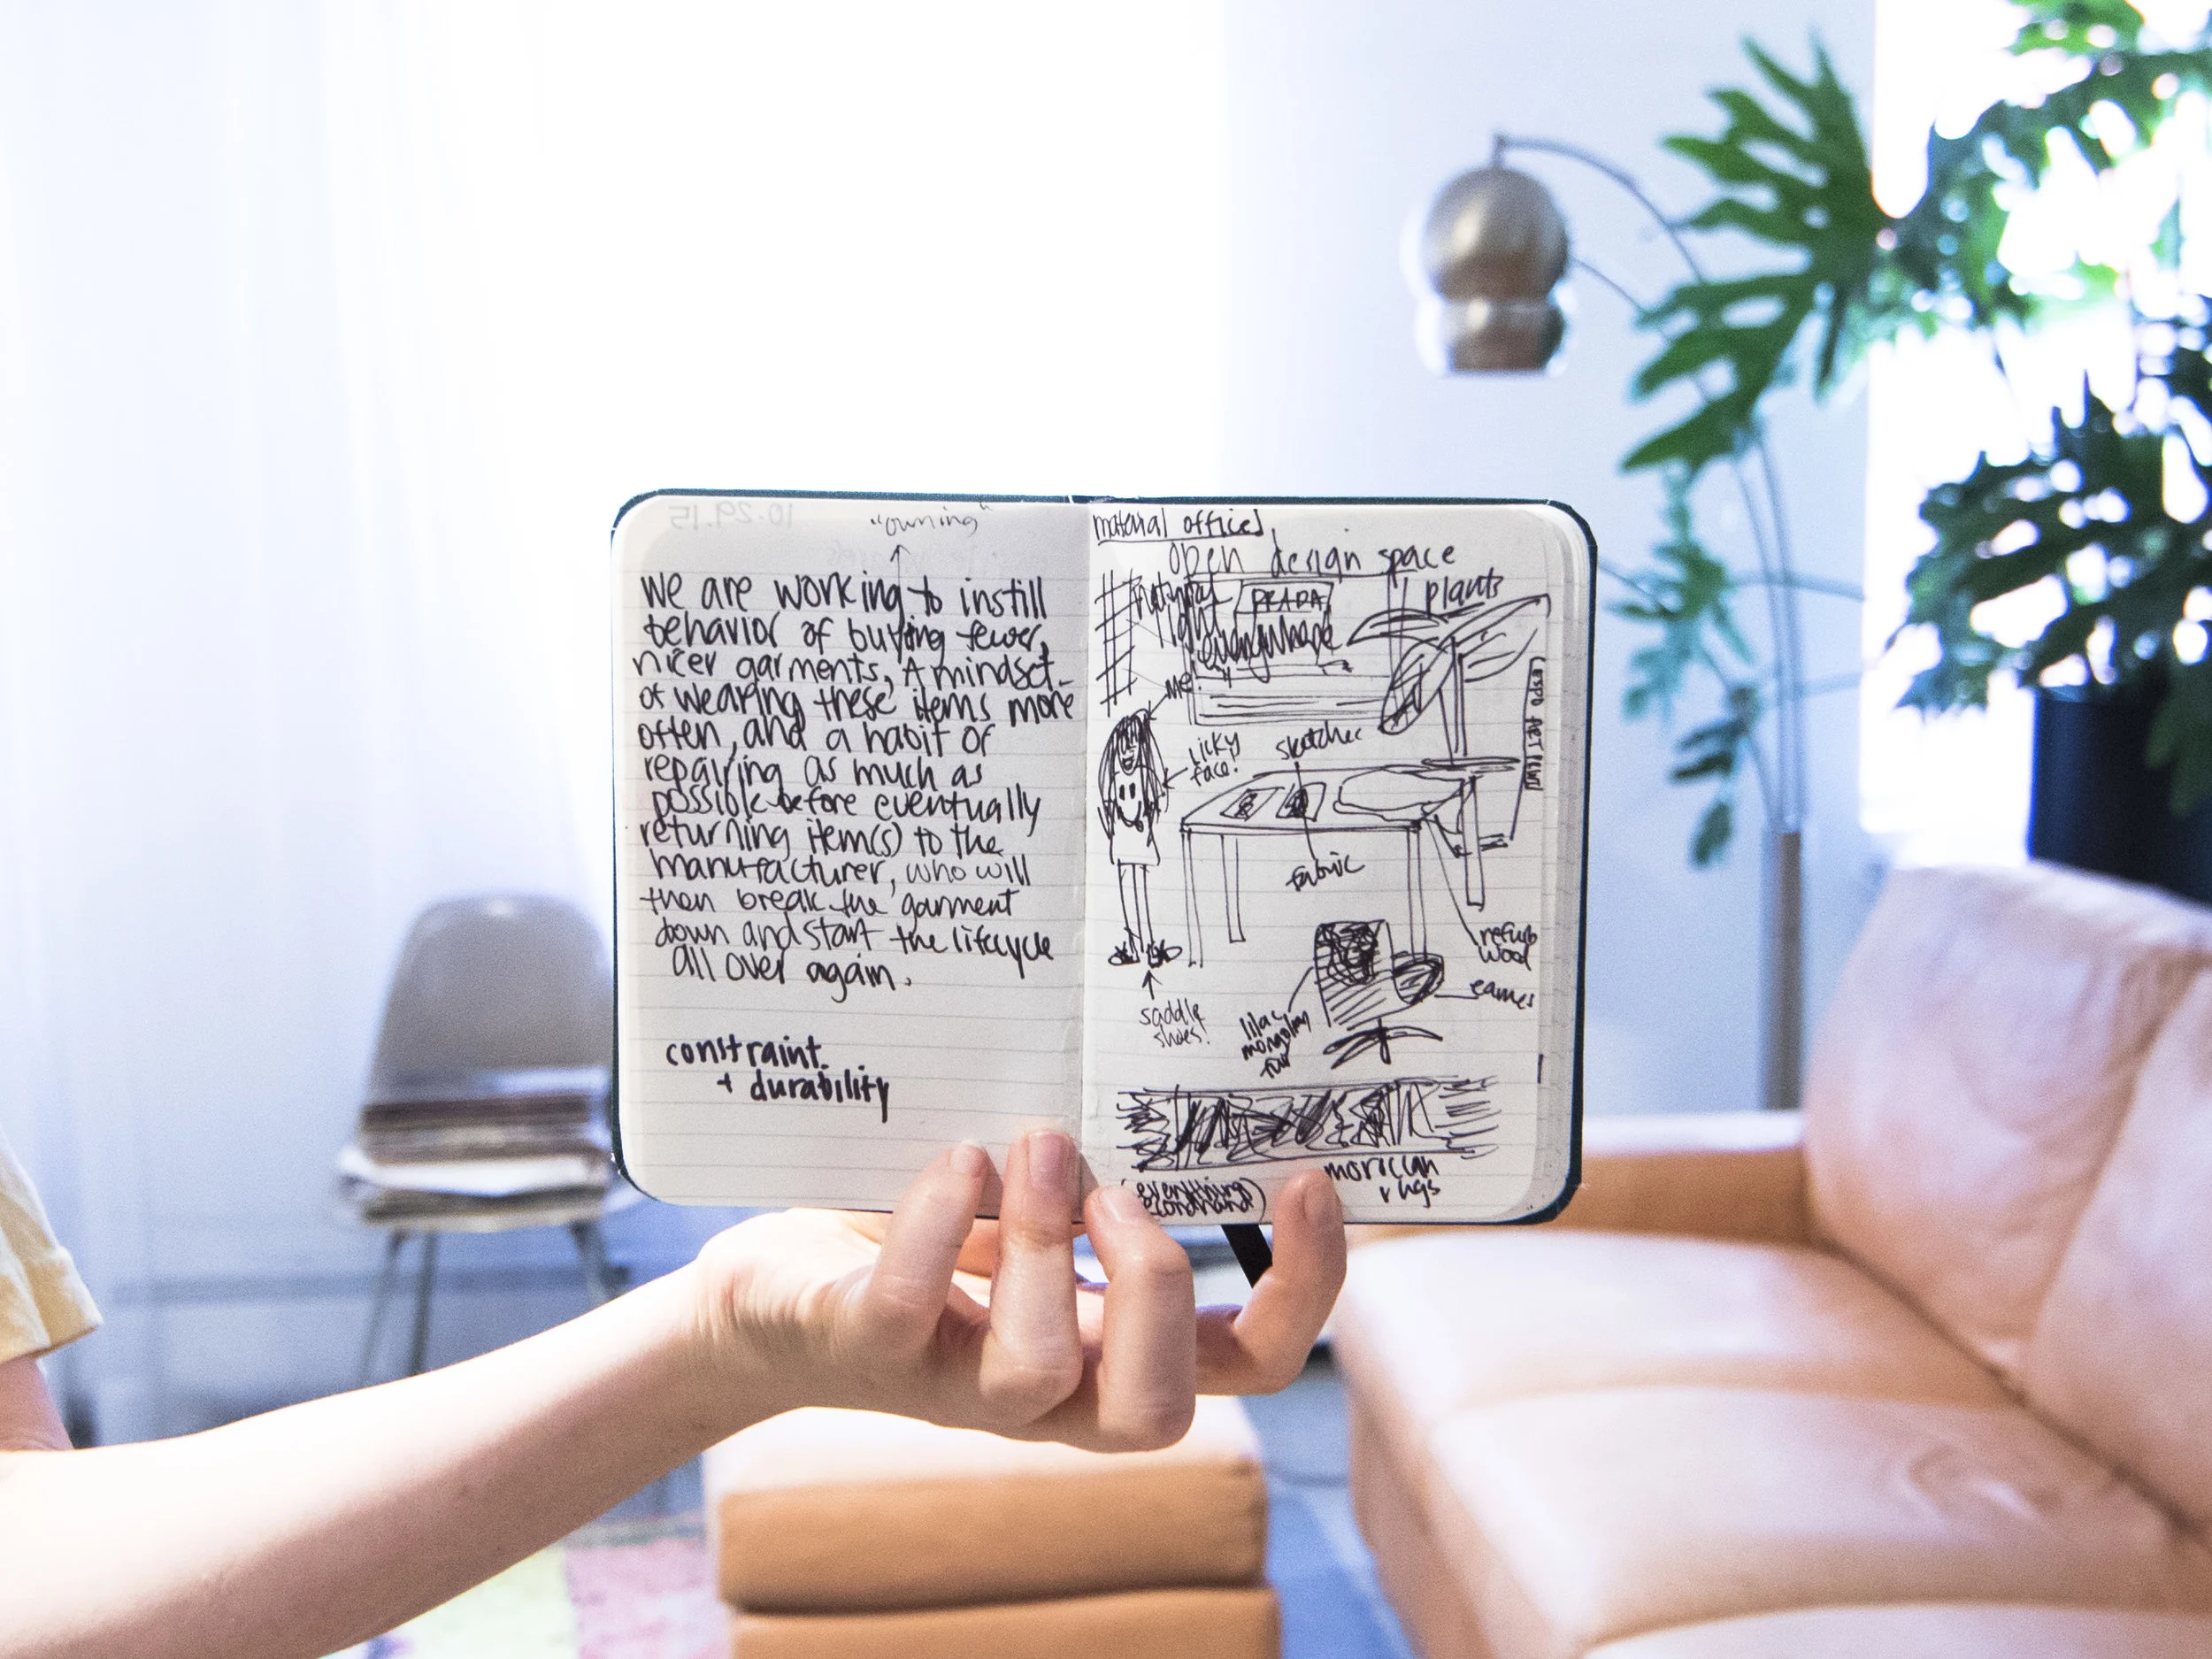 "owning"
we are working to instill
behavior of buying fewer,
nicer garments, A mindset
of wearing these items more
often, and a habit of
repairing as much as
possible before eventually
returning item(s) to the
manufacturer, who will
then break the garment
down and start the lifecycle
all over again.
constraint
+ durability
material offices
open design space
natural
light
everywhere
PRADA
plants
me!
licky
face!
sketches
fabric
refurb
wood
eames
saddle
shoes!
lilac
mongolian
fur
moroccan
rugs
(everything
secondhand)
10.29.15